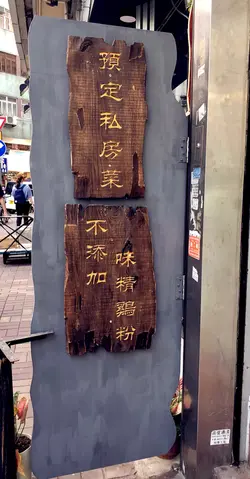 預定私房菜
不添加
味精鷄粉